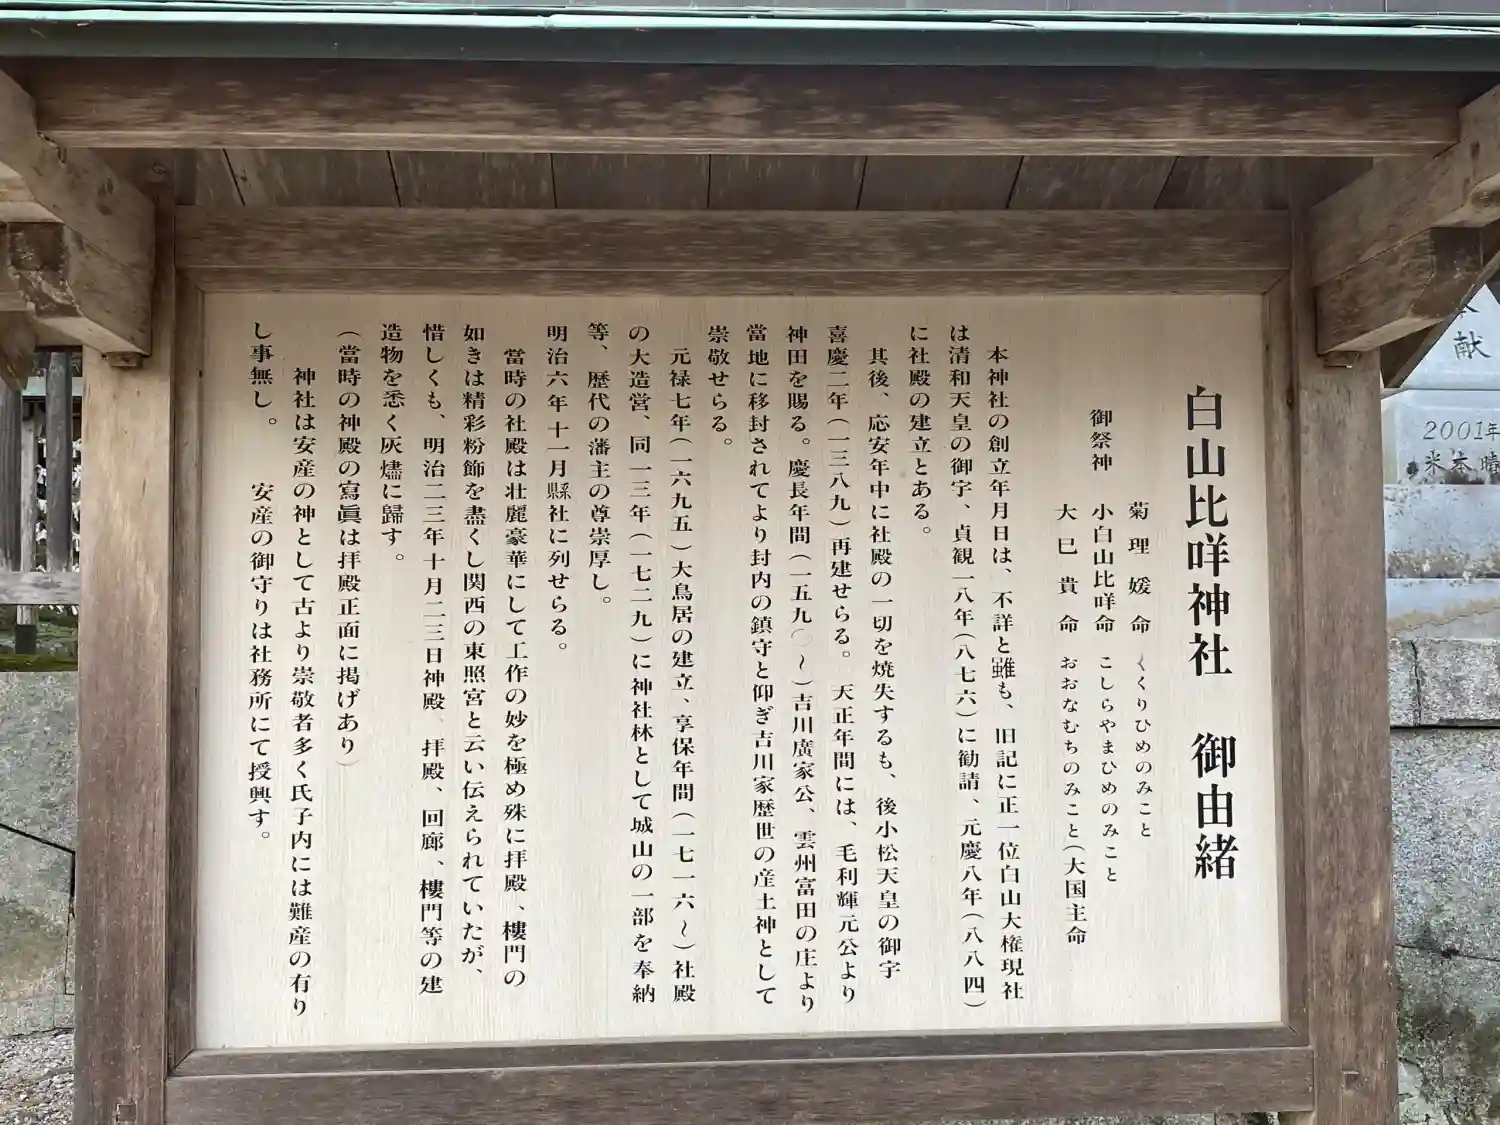 白山比咩神社　御由緒
御祭神
菊理媛命　くくりひめのみこと
小白山比咩命　こしらやまひめのみこと
大巳貴命　おおなむちのみこと(大国主命
本神社の創立年月日は、不詳と雖も、旧記に正一位白山大権現社
は清和天皇の御宇、貞観一八年(八七六)に勧請、元慶八年(八八四)
に社殿の建立とある。
其後、応安年中に社殿の一切を焼失するも、後小松天皇の御宇
喜慶二年(一三八九)再建せらる。天正年間には、毛利輝元公より
神田を賜る。慶長年間(一五九〇～)吉川廣家公、雲州富田の庄より
當地に移封されてより封内の鎮守と仰ぎ吉川家歴世の産土神として
崇敬せらる。
元禄七年(一六九五)大鳥居の建立、享保年間(一七一六～)社殿
の大造営、同一三年(一七二九)に神社林として城山の一部を奉納
等、歴代の藩主の尊崇厚し。
明治六年十一月縣社に列せらる。
當時の社殿は壮麗豪華にして工作の妙を極め殊に拝殿、樓門の
如きは精彩粉飾を盡くし関西の東照宮と云い伝えられていたが、
惜しくも、明治二三年十月二三日神殿、拝殿、回廊、樓門等の建
造物を悉く灰燼に歸す。
(當時の神殿の寫眞は拝殿正面に掲げあり)
神社は安産の神として古より崇敬者多く氏子内には難産の有り
し事無し。　安産の御守りは社務所にて授興す。
献
2001年
米本晴